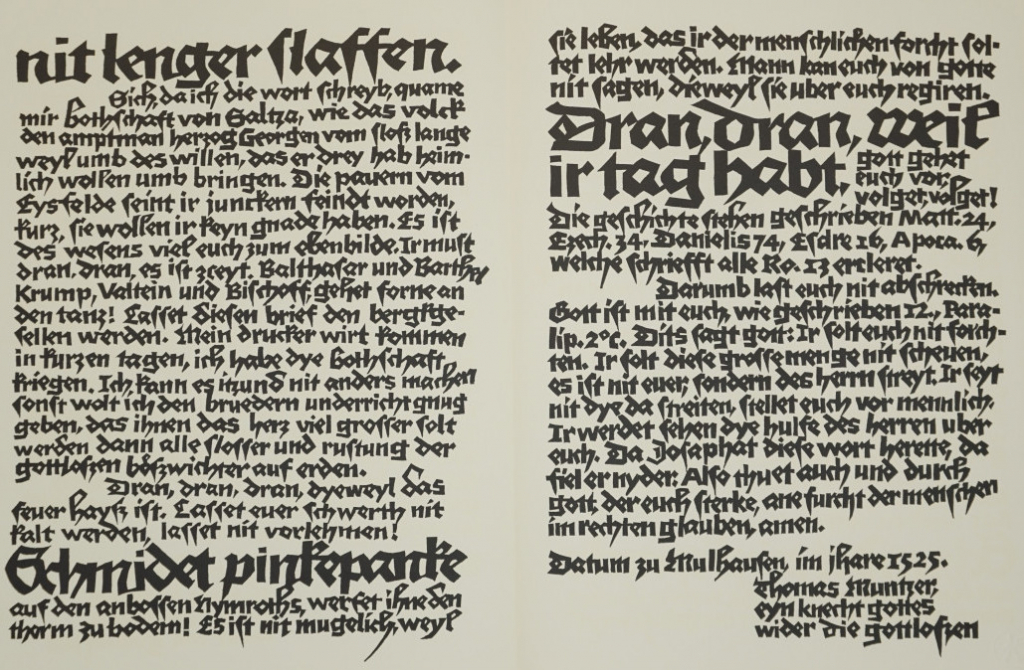 nit lenger slaffen.
Sich, da ich die wort schreyb, quame
mir bothschaft von Saltza, wie das volck
den amptman herzog Georgen vom sloß lange
weyl umb des willen, das er drey hab heim-
lich wollen umb bringen. Die pauern vom
Eysfelde seint ir junckern feindt worden,
kurz, sie wollen ir keyn gnade haben. Es ist
des wesens viel euch zum ebenbilde. Ir must
dran, dran, es ist zceyt. Balthasar und Barthel
Krump, Valtein und Bischoff, gehet forne an
den tanz! Lasset diesen brief den bergkge-
sellen werden. Mein drucker wirt kommen
in kurzen tagen, ich habe dye bothschaft
kriegen. Ich kann es itzund nit anders machen
sonst wolt ich den bruedern underricht gnug
geben, das ihnen das herz viel grosser solt
werden dann alle slosser und rustung der
gottloszen böszwichter auf erden.
Dran, dran, dran, dyeweyl das
feuer hayß ist. Lasset euer schwerth nit
kalt werden, lasset nit vorlehmen!
Schmidet pinkepanke
auf den anbossen Nymroths, werfet ihne den
thorm zu bodem! Es ist nit mugelich, weyl
sie leben, das ir der menschlichen forcht sol-
tet lehr werden. Mann kan euch von gotte
nit sagen, dieweyl sie uber euch regiren.
Dran, dran, weil
ir tag habt, gott gehet
euch vor,
volget, volget!
Die geschichte stehen geschrieben Matt. 24,
Ezech. 34, Danielis 74, Esdre 16, Apoca. 6,
welche schriefft alle Ro. 13 ercleret.
Darumb last euch nit abschrecken.
Gott ist mit euch, wie geschrieben 12., Para-
lip. 2°c. Dits sagt gott: Ir solt euch nit forch-
ten. Ir solt diese grosse menge nit scheuen,
es ist nit euer, sondern des herrn streyt. Ir seyt
nit dye da streiten, stellet euch vor mennlich.
Ir werdet sehen dye hulfe des herren uber
euch. Da Josaphat diese wort herette, da
fiel er nyder. Also thuet auch und durch
gott, der euch sterke, ane furcht der menschen
im rechten glauben, amen.
Datum zu Mulhausen, im jhare 1525.
Thomas Muntzer,
eyn knecht gottes
wider die gottloszen